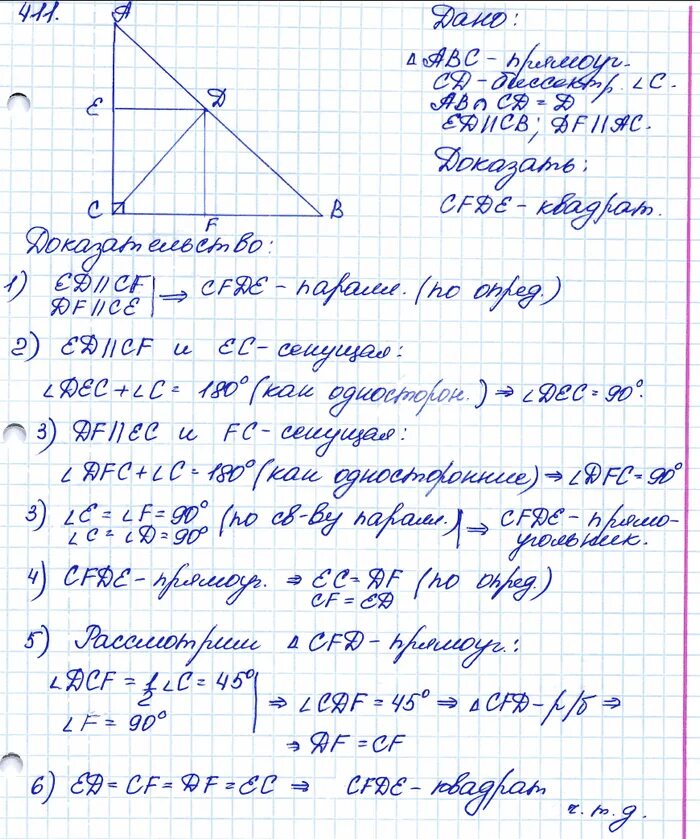 411.
A
E
D
C
F
B
Дано:
△ABC – прямоуг.
CD – биссектр. ∠C.
AB ∩ CD = D
ED || CB; DF || AC.
Доказать:
CFDE – квадрат.
Доказательство:
1) ED || CF
DF || CE | ⇒ CFDE – паралл. (по опред.)
2) ED || CF и EC – секущая:
∠DEC + ∠C = 180° (как односторон.) ⇒ ∠DEC = 90°.
3) DF || EC и FC – секущая:
∠DFC + ∠C = 180° (как односторонние) ⇒ ∠DFC = 90°
3) ∠E = ∠F = 90°
∠C = ∠D = 90° (по св-ву паралл.) | ⇒ CFDE – прямо-
угольник.
4) CFDE – прямоуг. ⇒ EC = DF (по опред.)
CF = ED
5) Рассмотрим △CFD – прямоуг.:
∠DCF = 1/2 ∠C = 45°
∠F = 90° | ⇒ ∠CDF = 45° ⇒ △CFD – р/б ⇒
⇒ DF = CF
6) ED = CF = DF = EC ⇒ CFDE – квадрат
ч.т.д.